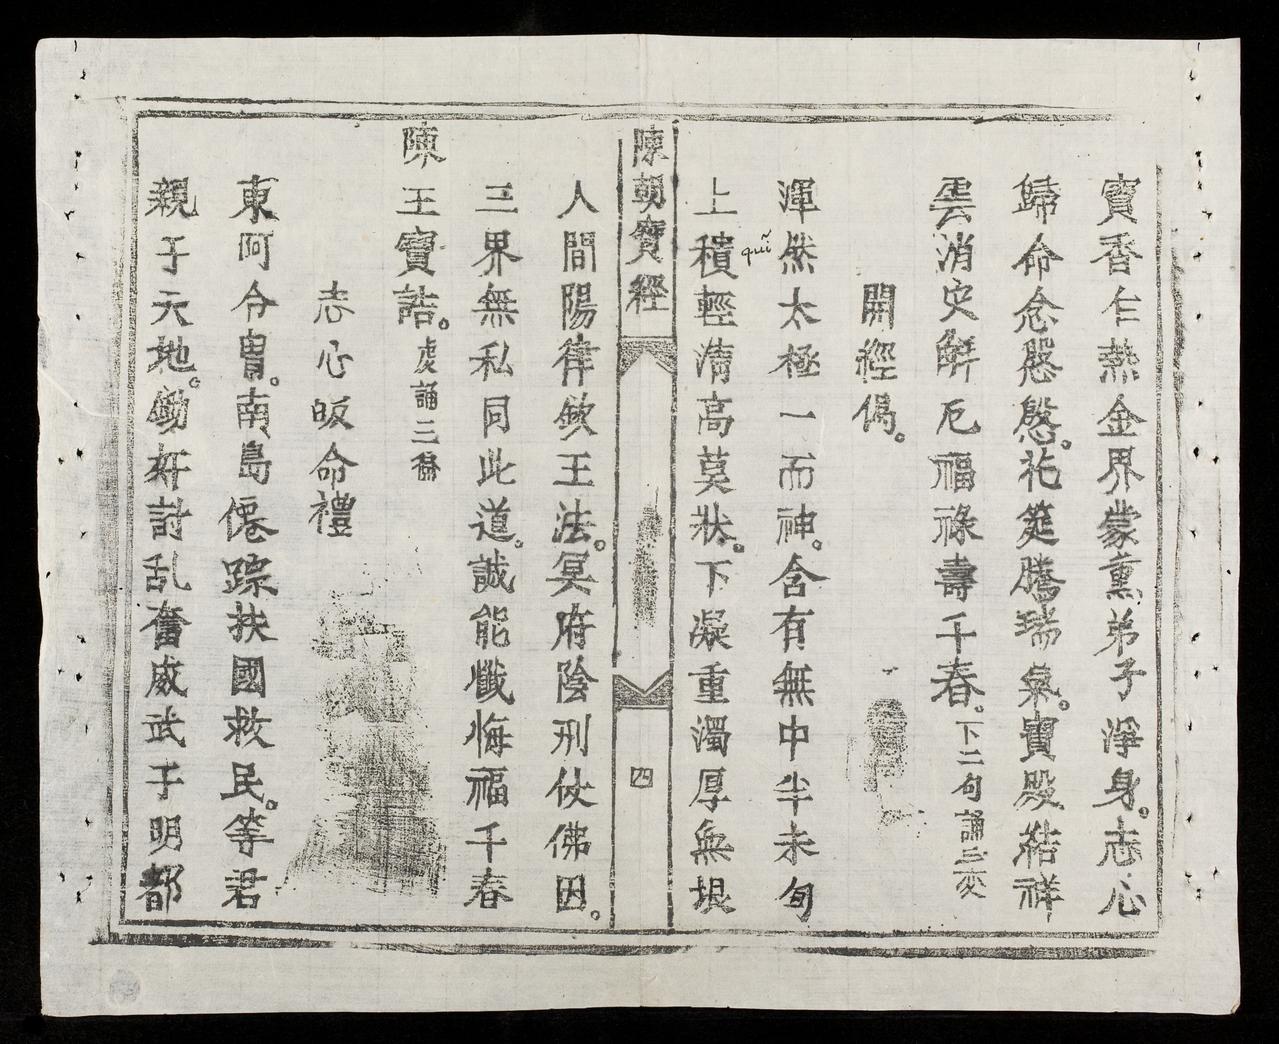 寶香乍爇金界蒙薰弟子淨身。志心
歸命念慇慇。花筵騰瑞氣。寶殿藹祥
雲消灾解厄福祿壽千春。下二句誦三変
開經偈。
渾然太極一而神。含有無中半未旬
quĩ
上積輕清高莫狀。下凝重濁厚無垠
陳朝寶經
四
人間陽律欽王法。冥府陰刑仗佛因。
三界無私同此道。誠能懺悔福千春
陳王寶誥。虔誦三番
志心皈命禮
東阿令胄。南島僊踪扶國救民。等君
親于天地。鋤奸討乱奮威武于明都